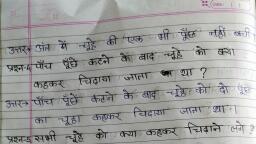 उत्तर- अंत में चूहे की एक भी पूँछ नहीं बची
प्रश्न-4 पाँच पूँछे कटने के बाद चूहे को क्या
कहकर चिढ़ाया जाता था ?
उत्तर- पाँच पूँछे कटने के बाद चूहे को दो पूँछ
का चूहा कहकर चिढ़ाया जाता था।
प्रश्न-5 सभी चूहे को क्या कहकर चिढ़ाने लगे ?